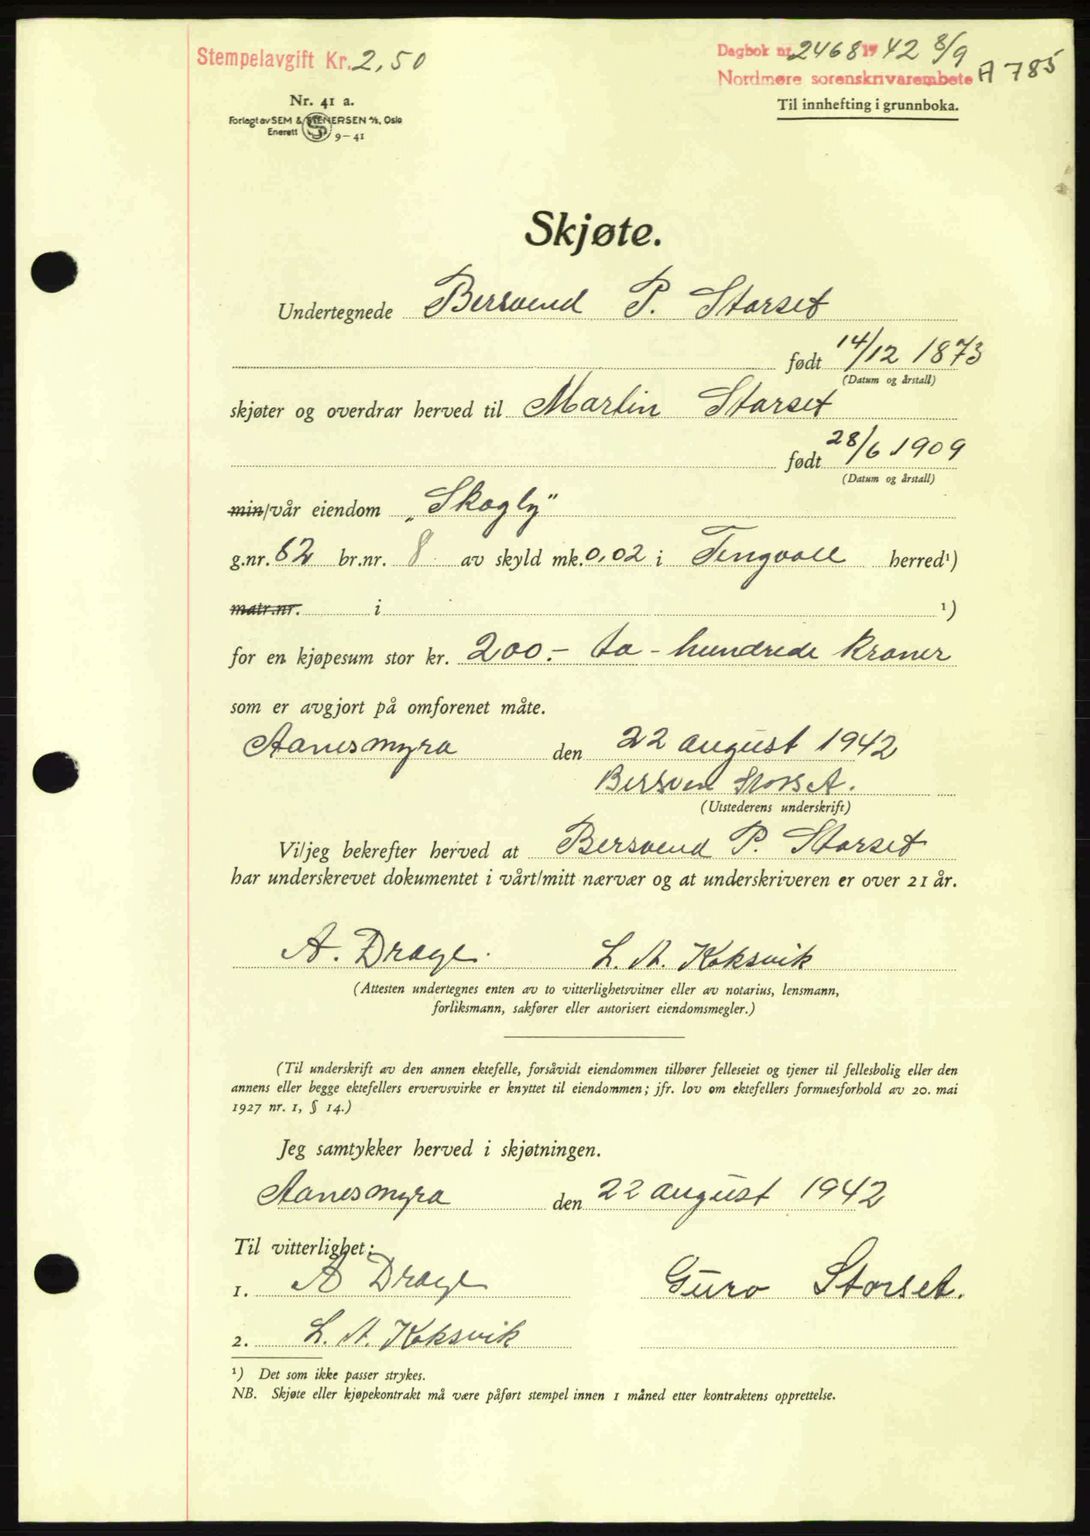 Stempelavgift Kr. 2,50
Dagbok nr. 2468 1942 8/9
Nordmøre sorenskrivarembete A 785
Nr. 41 a.
Til innhefting i grunnboka.
Forlagt av SEM & STENERSEN A/S, Oslo
Enerett 9-41
Skjøte.
Undertegnede Bersvend P. Storset
født 14/12 1873
(Datum og årstall)
skjøter og overdrar herved til Martin Storset
født 28/6 1909
(Datum og årstall)
min/vår eiendom „Skogly"
g.nr. 62 br.nr. 8 av skyld mk. 0,02 i Tingvoll herred¹)
matr.nr. i ¹)
for en kjøpesum stor kr. 200.- to-hundrede kroner
som er avgjort på omforenet måte.
Aanesmyra den 22 august 1942
Bersven Storset.
(Utstederens underskrift)
Vi/jeg bekrefter herved at Bersvend P. Storset
har underskrevet dokumentet i vårt/mitt nærvær og at underskriveren er over 21 år.
A. Drage. L. A. Koksvik
(Attesten undertegnes enten av to vitterlighetsvitner eller av notarius, lensmann,
forliksmann, sakfører eller autorisert eiendomsmegler.)
(Til underskrift av den annen ektefelle, forsåvidt eiendommen tilhører felleseiet og tjener til fellesbolig eller den
annens eller begge ektefellers ervervsvirke er knyttet til eiendommen; jfr. lov om ektefellers formuesforhold av 20. mai
1927 nr. 1, § 14.)
Jeg samtykker herved i skjøtningen.
Aanesmyra den 22 august 1942
Til vitterlighet:
1. A Drage Guro Storset.
2. L. A. Koksvik
¹) Det som ikke passer strykes.
NB. Skjøte eller kjøpekontrakt må være påført stempel innen 1 måned etter kontraktens opprettelse.